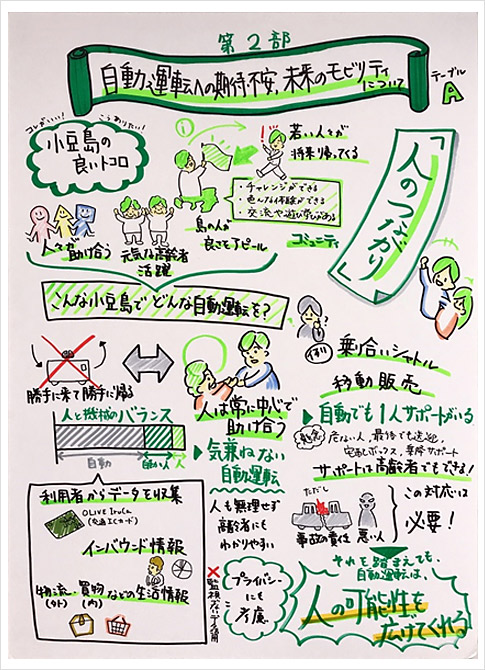 第2部
自動運転への期待不安、未来のモビリティ
について
テーブル
A
コレがいい!
こうありたい!
小豆島の
良いトコロ
若い人々が
将来帰ってくる
・チャレンジができる
・色んな体験ができる
・交流や遊び学びがある
コミュニティ
「人のつながり」
人々が
助け合う
元気な高齢者
活躍
島の人が
良さをアピール
こんな小豆島で どんな自動運転を?
勝手に来て勝手に帰る
人は常に中心で
助け合う
例
乗合いシャトル
移動販売
人と機械のバランス
自動
人
▶気兼ねない
自動運転
▶自動でも1人サポートがいる
危ない人、最後でも送迎
宅配ボックス、乗降サポート
サポートは高齢者でもできる!
利用者からデータを収集
OLIVE IruCa
(交通ICカード)
インバウンド情報
物流・買物などの生活情報
(外)
(内)
人も無理せず
高齢者にも
わかりやすい
×監視
プライバシー
にも
考慮
ただし
事故の責任
悪い人
この対応は
必要!
それを踏まえても、
自動運転は、
人の可能性を
広げてくれる